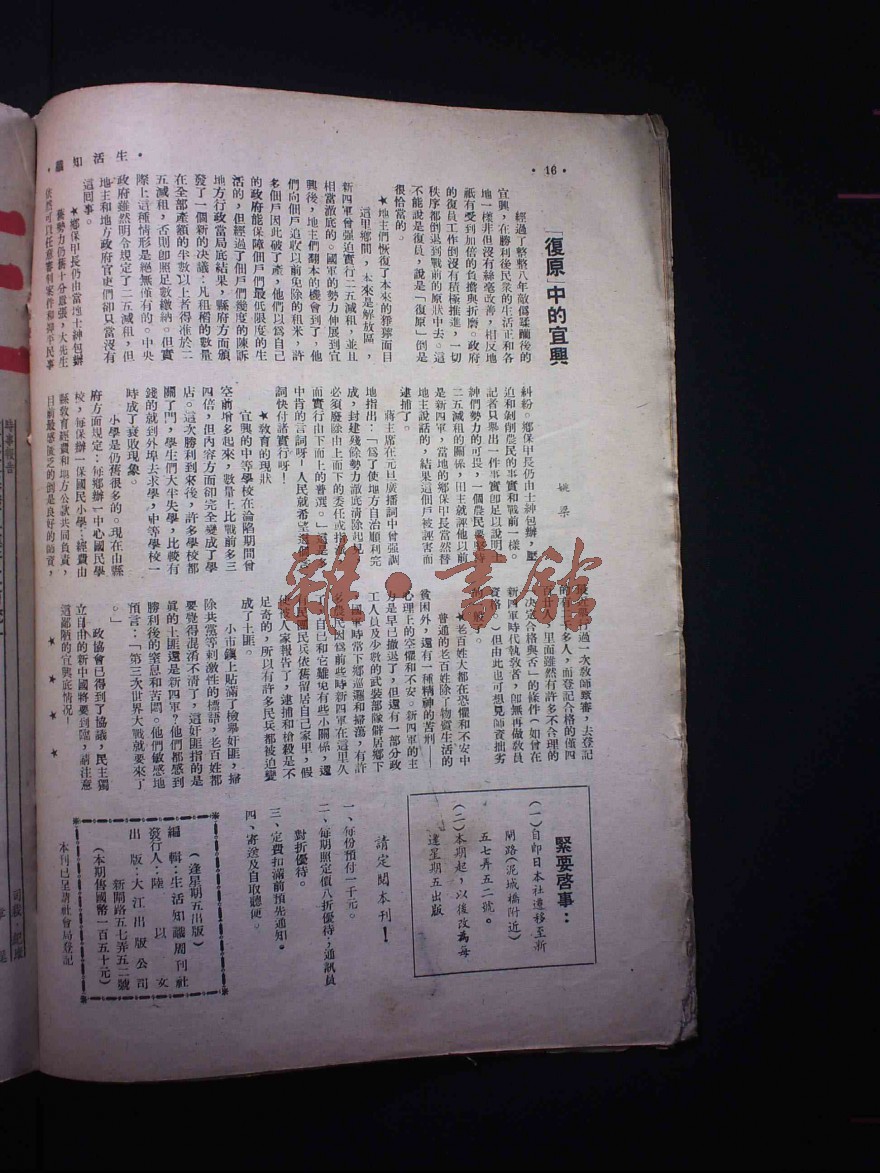 ·16·
生活知識·
「復原」中的宜興
姚梁
經過了整整八年敵僞蹂躪後的
宜興，在勝利後民衆的生活正和各
地一樣非但沒有絲毫改善，相反地
祇有受到加倍的負擔與折磨。政府
的復員工作倒沒有積極推進，一切
秩序都倒退到戰前的原狀中去。這
不能說是復員，說是「復原」倒是
很恰當的。
★地主們恢復了本來的猙獰面目
這里鄉間，本來是解放區，
新四軍曾强迫實行二五減租，並且
相當澈底的。國軍的勢力伸展到宜
興後，地主們翻本的機會到了，他
們向佃戶追收以前免除的租米，許
多佃戶因此破了產，他們以爲自己
的政府能保障佃戶們最低限度的生
活的，但經過了佃戶們幾度的陳訴
地方行政當局底結果，縣府方面頒
發了一個新的决議：凡租稻的數量
在全部產額的半數以上者得准於二
五減租，否則卽照足數繳納。但實
際上這種情形是絕無僅有的。中央
政府雖然明令規定了二五減租，但
地主和地方政府官吏們卻只當沒有
這回事。
★鄉保甲長仍由當地士紳包辦
舊勢力仍舊十分囂張，大先生
依然可以任意審判案件和排平民事
糾紛。鄉保甲長仍由士紳包辦，壓
迫和剝削農民的事實和戰前一樣。
記者只舉出一件事實卽足以說明土
紳們勢力的可畏，一個農民要堅持
二五減租的關係，田主就誣他以前
是新四軍，當地的鄉保甲長當然替
地主說話的，結果這個佃戶被誣害而
逮捕了。
蔣主席在元旦廣播詞中曾强調
地指出：「爲了使地方自治順利完
成，封建殘餘勢力澈底清除起見，
必須廢除由上而下的委任或指派
而實行由下而上的普選。」這是
中肯的言詞呀！人民就希望這個
詞快付諸實行呀！
★敎育的現狀
宜興的中等學校在淪陷期間曾
空前增多起來，數量上比戰前多三
四倍，但內容方面卻完全變成了學
店。這次勝利到來後，許多學校都
關了門，學生們大半失學，比較有
錢的就到外埠去求學，中等學校一
時成了衰敗現象。
小學是仍舊很多的。現在由縣
府方面規定：每鄉辦一中心國民學
校，每保辦一保國民小學：經費由
縣敎育經費和地方公欵共同負責，
目前最感缺乏的倒是良好的師資，
最近舉行過一次敎師甄審，去登記
的有二百多人，而登記合格的僅四
五十人，里面雖然有許多不合理的
「决定合格與否」的條件（如曾在
新四軍時代執敎者，卽無再做敎員
資格。）但由此也可想見師資拙劣
的一般了。
★老百姓大都在恐懼和不安中
普通的老百姓除了物質生活的
貧困外，還有一種精神的苦刑——
心理上的空懼和不安。新四軍的主
力是早已撤退了，但還有一部分政
工人員及少數的武裝部隊僻居鄉下
國軍時常下鄉巡邏和掃蕩，有許
多農民因爲前些時新四軍在這里久
了，自己和它難免有些小關係，還
有民國民兵依舊留居自己家里，假
使被人家報告了，逮捕和槍殺是不
足奇的，所以有許多民兵都被迫變
成了土匪。
小市鎭上貼滿了檢舉奸匪，掃
除共黨等刺激性的標語，老百姓都
要覺得混淆不清了，這奸匪指的是
眞的土匪還是新四軍？他們都感到
勝利後的窒息和苦悶。他們敏感地
預言：「第三次世界大戰就要來了
。」
政協會已得到了協議，民主獨
立自由的新中國將要到臨，請注意
這鄙陋的宜興底情况！
★ ★ ★ ★
緊要啓事：
（一）自卽日本社遷移至新
閘路（泥城橋附近）
五七弄五二號。
（二）本期起，以後改爲每
逢星期五出版
請定閱本刋！
一、每份預付一千元。
二、每期照定價八折優待；通訊員
對折優待。
三、定費扣滿前預先通知。
四、寄送及自取聽便。
（逢星期五出版）
編輯：生活知識周刊社
發行人：陸以文
出版：大江出版公司
新閘路五七弄五二號
（本期售國幣一百五十元）
本刋已呈請社會局登記
時事報告
雜·書館